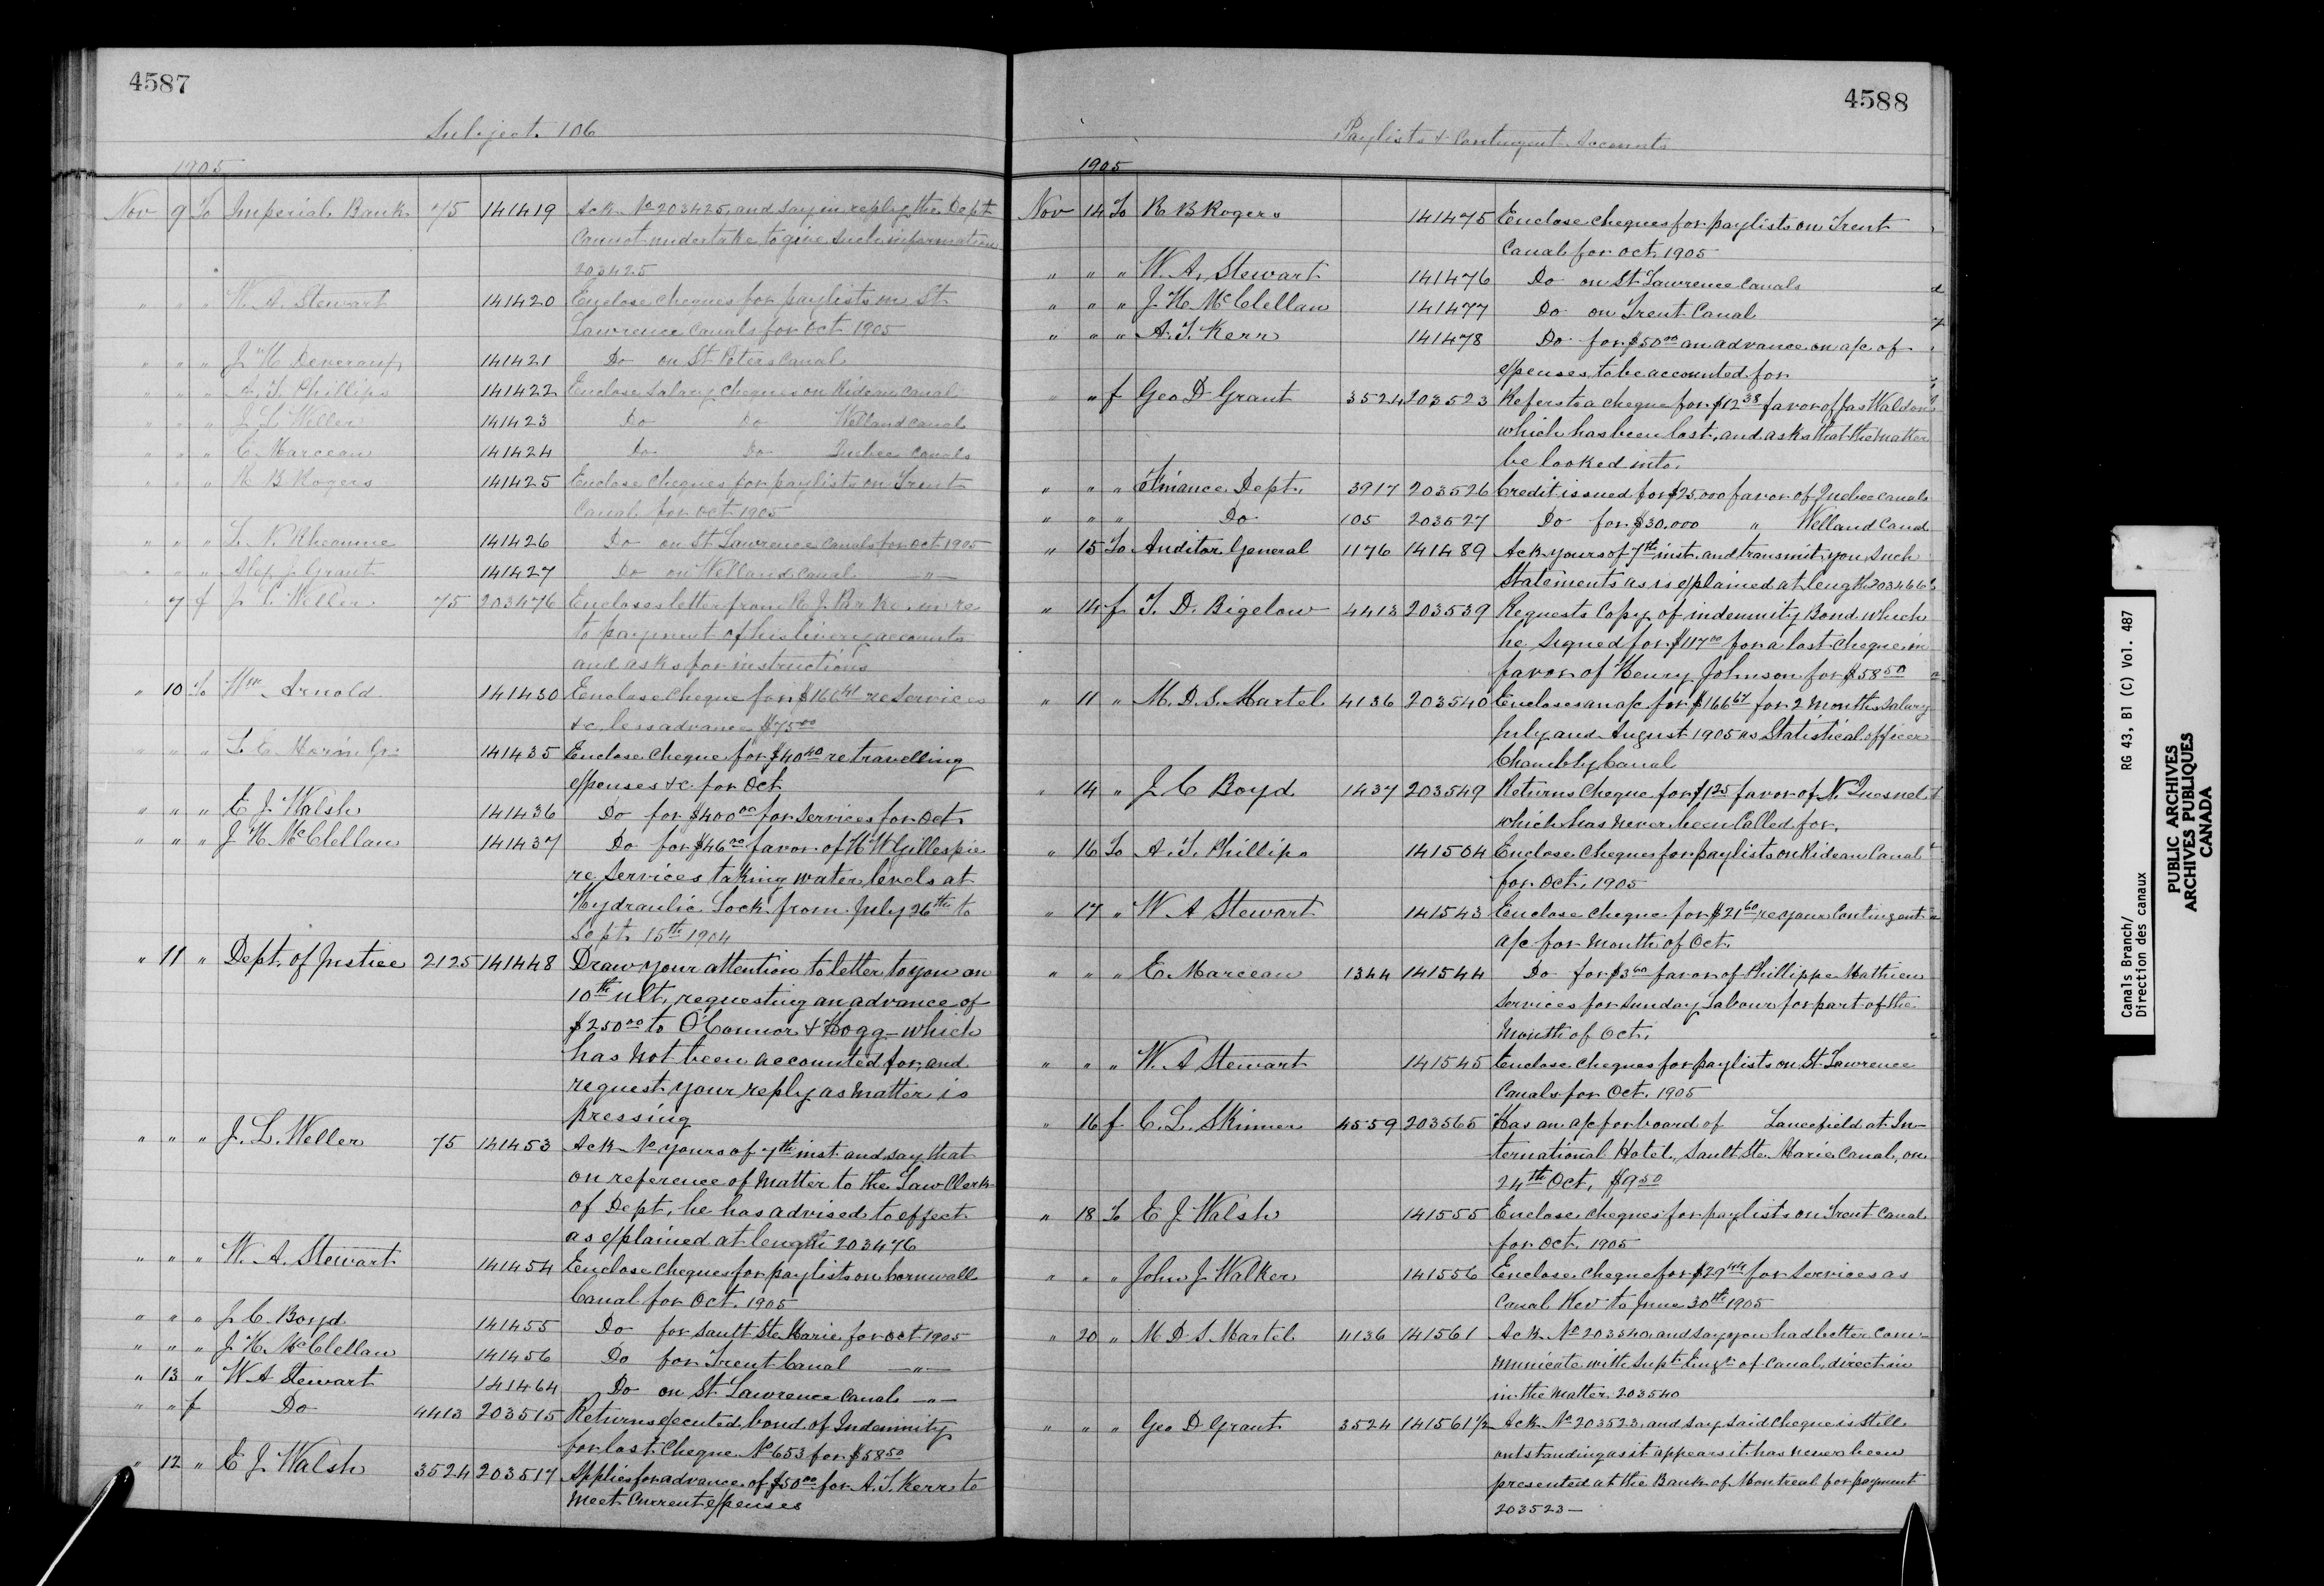 4587
Subject. 106
1905
Nov 9 To Imperial Bank 75 141419 Ack No 203425, and say in reply the Dept
cannot undertake to give such information
203425
" " " W. A. Stewart 141420 Enclose cheques for paylists on St.
Lawrence canals for Oct 1905
" " " J. H. Devereux 141421 Do on St Peters Canal
" " " A. T. Phillips 141422 Enclose salary cheques on Rideau Canal
" " " J. L. Weller 141423 Do Do Welland Canal
" " " E Marceau 141424 Do Do Quebec Canals
" " " R B Rogers 141425 Enclose cheques for paylists on Trent
Canal for Oct 1905
" " " L. N. Rheaume 141426 Do on St Lawrence Canals for Oct 1905
" " " J. Grant 141427 Do on Welland Canal "
" 7 f J. L. Weller 75 203476 Encloses letter from R. J. Parke in re
to payment of his livery accounts
and asks for instructions
" 10 To Wm Arnold 141430 Enclose cheque for $166 41 re services
&c less advance $75 00
" " " 141435 Enclose cheque for $40 40 re travelling
expenses &c for Oct
" " " E J. Walsh 141436 Do for $400 00 for services for Oct
" " " J H McClellan 141437 Do for $46 00 favor of H W Gillespie
re services taking water levels at
Hydraulic Lock from July 26th to
Sept. 15th 1904
" 11 " Dept. of Justice 2125 141448 Draw your attention to letter to you on
10th ult, requesting an advance of
$250 00 to O'Connor & Hogg which
has not been accounted for, and
request your reply as matter is
pressing
" " " J. L. Weller 75 141453 Ack No yours of 7th inst and say that
on reference of matter to the Law Clerk
of Dept, he has advised to effect
as explained at length 203476
" " " W. A. Stewart 141454 Enclose cheques for paylists on Cornwall
Canal for Oct. 1905
" " " J. C. Boyd 141455 Do for Sault Ste Marie for Oct 1905
" " " J. H. McClellan 141456 Do for Trent Canal "
" 13 " W A Stewart 141464 Do on St Lawrence Canals "
" " f Do 4413 203515 Returns executed bond of Indemnity
for lost Cheque No 653 for $58 50
" 12 " E J. Walsh 3524 203517 Applies for advance of $50 00 for A. T. Kerr to
meet current expenses
4588
Paylists & Contingent Accounts
1905
Nov 14 To R B Rogers 141475 Enclose cheques for paylists on Trent
Canal for Oct 1905
" " " W. A. Stewart 141476 Do on St Lawrence Canals
" " " J. H. McClellan 141477 Do on Trent Canal
" " " A. T. Kerr 141478 Do for $50 00 an advance on a/c of
expenses to be accounted for
" " f Geo D Grant 3524 203523 Refers to a cheque for $12 38 favor of Jas Waldon
which has been lost, and asks that the matter
be looked into.
" " " Finance Dept. 3917 203526 Credit issued for $25,000 favor of Quebec Canals
" " " Do 105 203527 Do for $30,000 " Welland Canal
" 15 To Auditor General 1176 141489 Ack yours of 7th inst. and transmit you such
statements as is explained at length 203466
" 14 f T. D. Bigelow 4413 203539 Requests copy of indemnity Bond which
he signed for $117 00 for a lost cheque in
favor of Henry Johnson for $58 50
" 11 " M. D. S. Martel 4136 203540 Encloses an a/c for $166 67 for 2 months salary
July and August 1905 as Statistical officer
Chambly Canal
" 14 " J C Boyd 1437 203549 Returns cheque for $1 25 favor of N. Quesnel
which has never been called for.
" 16 To A. T. Phillips 141504 Enclose cheques for paylists on Rideau Canal
for Oct. 1905
" 17 " W A Stewart 141543 Enclose cheque for $21 60 re your Contingent
a/c for month of Oct.
" " " E. Marceau 1344 141544 Do for $3 60 favor of Phillippe Mathieu
services for Sunday Labour for part of the
month of Oct.
" " " W. A Stewart 141545 Enclose cheques for paylists on St. Lawrence
Canals for Oct. 1905
" 16 f C. L. Skinner 4559 203565 Has an a/c for board of Lancefield at In-
ternational Hotel, Sault Ste. Marie Canal, on
24th Oct. $9 50
" 18 To E J. Walsh 141555 Enclose cheques for paylists on Trent Canal
for Oct. 1905
" " " John J. Walker 141556 Enclose cheque for $29 44 for services as
Canal Rev to June 30th 1905
" 20 " M. D. S. Martel 4136 141561 Ack No 203540 and say you had better com-
municate with Supt. Engr of canal, direct in
in the matter. 203540
" " " Geo D Grant 3524 141561½ Ack No 203523, and say said cheque is still
outstanding as it appears it has never been
presented at the Bank of Montreal for payment
203523—
Canals Branch/
Direction des canaux
RG 43, B1 (C) Vol. 487
PUBLIC ARCHIVES
ARCHIVES PUBLIQUES
CANADA